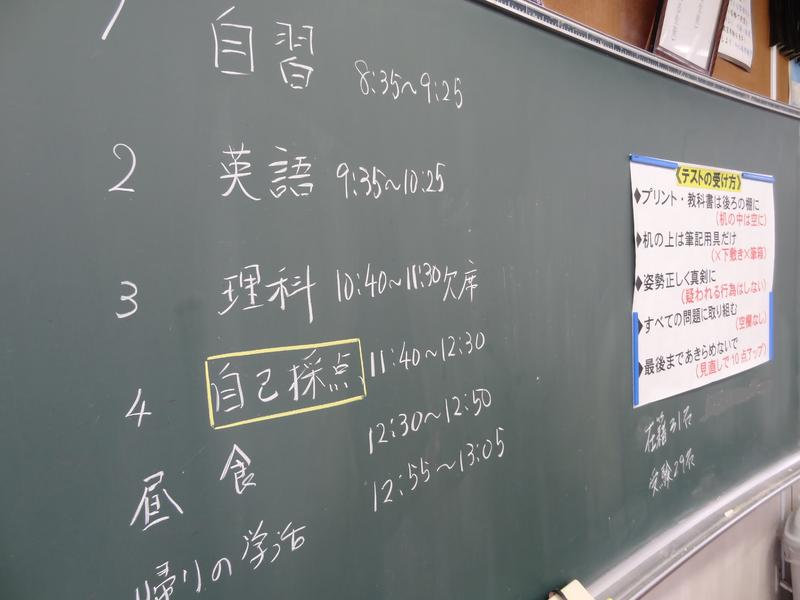 自習 8:35~9:25
2 英語 9:35~10:25
3 理科 10:40~11:30 欠席
4 自己採点 11:40~12:30
昼食 12:30~12:50
帰りの学活 12:55~13:05
《テストの受け方》
◆プリント・教科書は後ろの棚に
(机の中は空に)
◆机の上は筆記用具だけ
(×下敷き×筆箱)
◆姿勢正しく真剣に
(疑われる行為はしない)
◆すべての問題に取り組む
(空欄なし)
◆最後まであきらめないで
(見直しで10点アップ)
在籍31名
受験29名